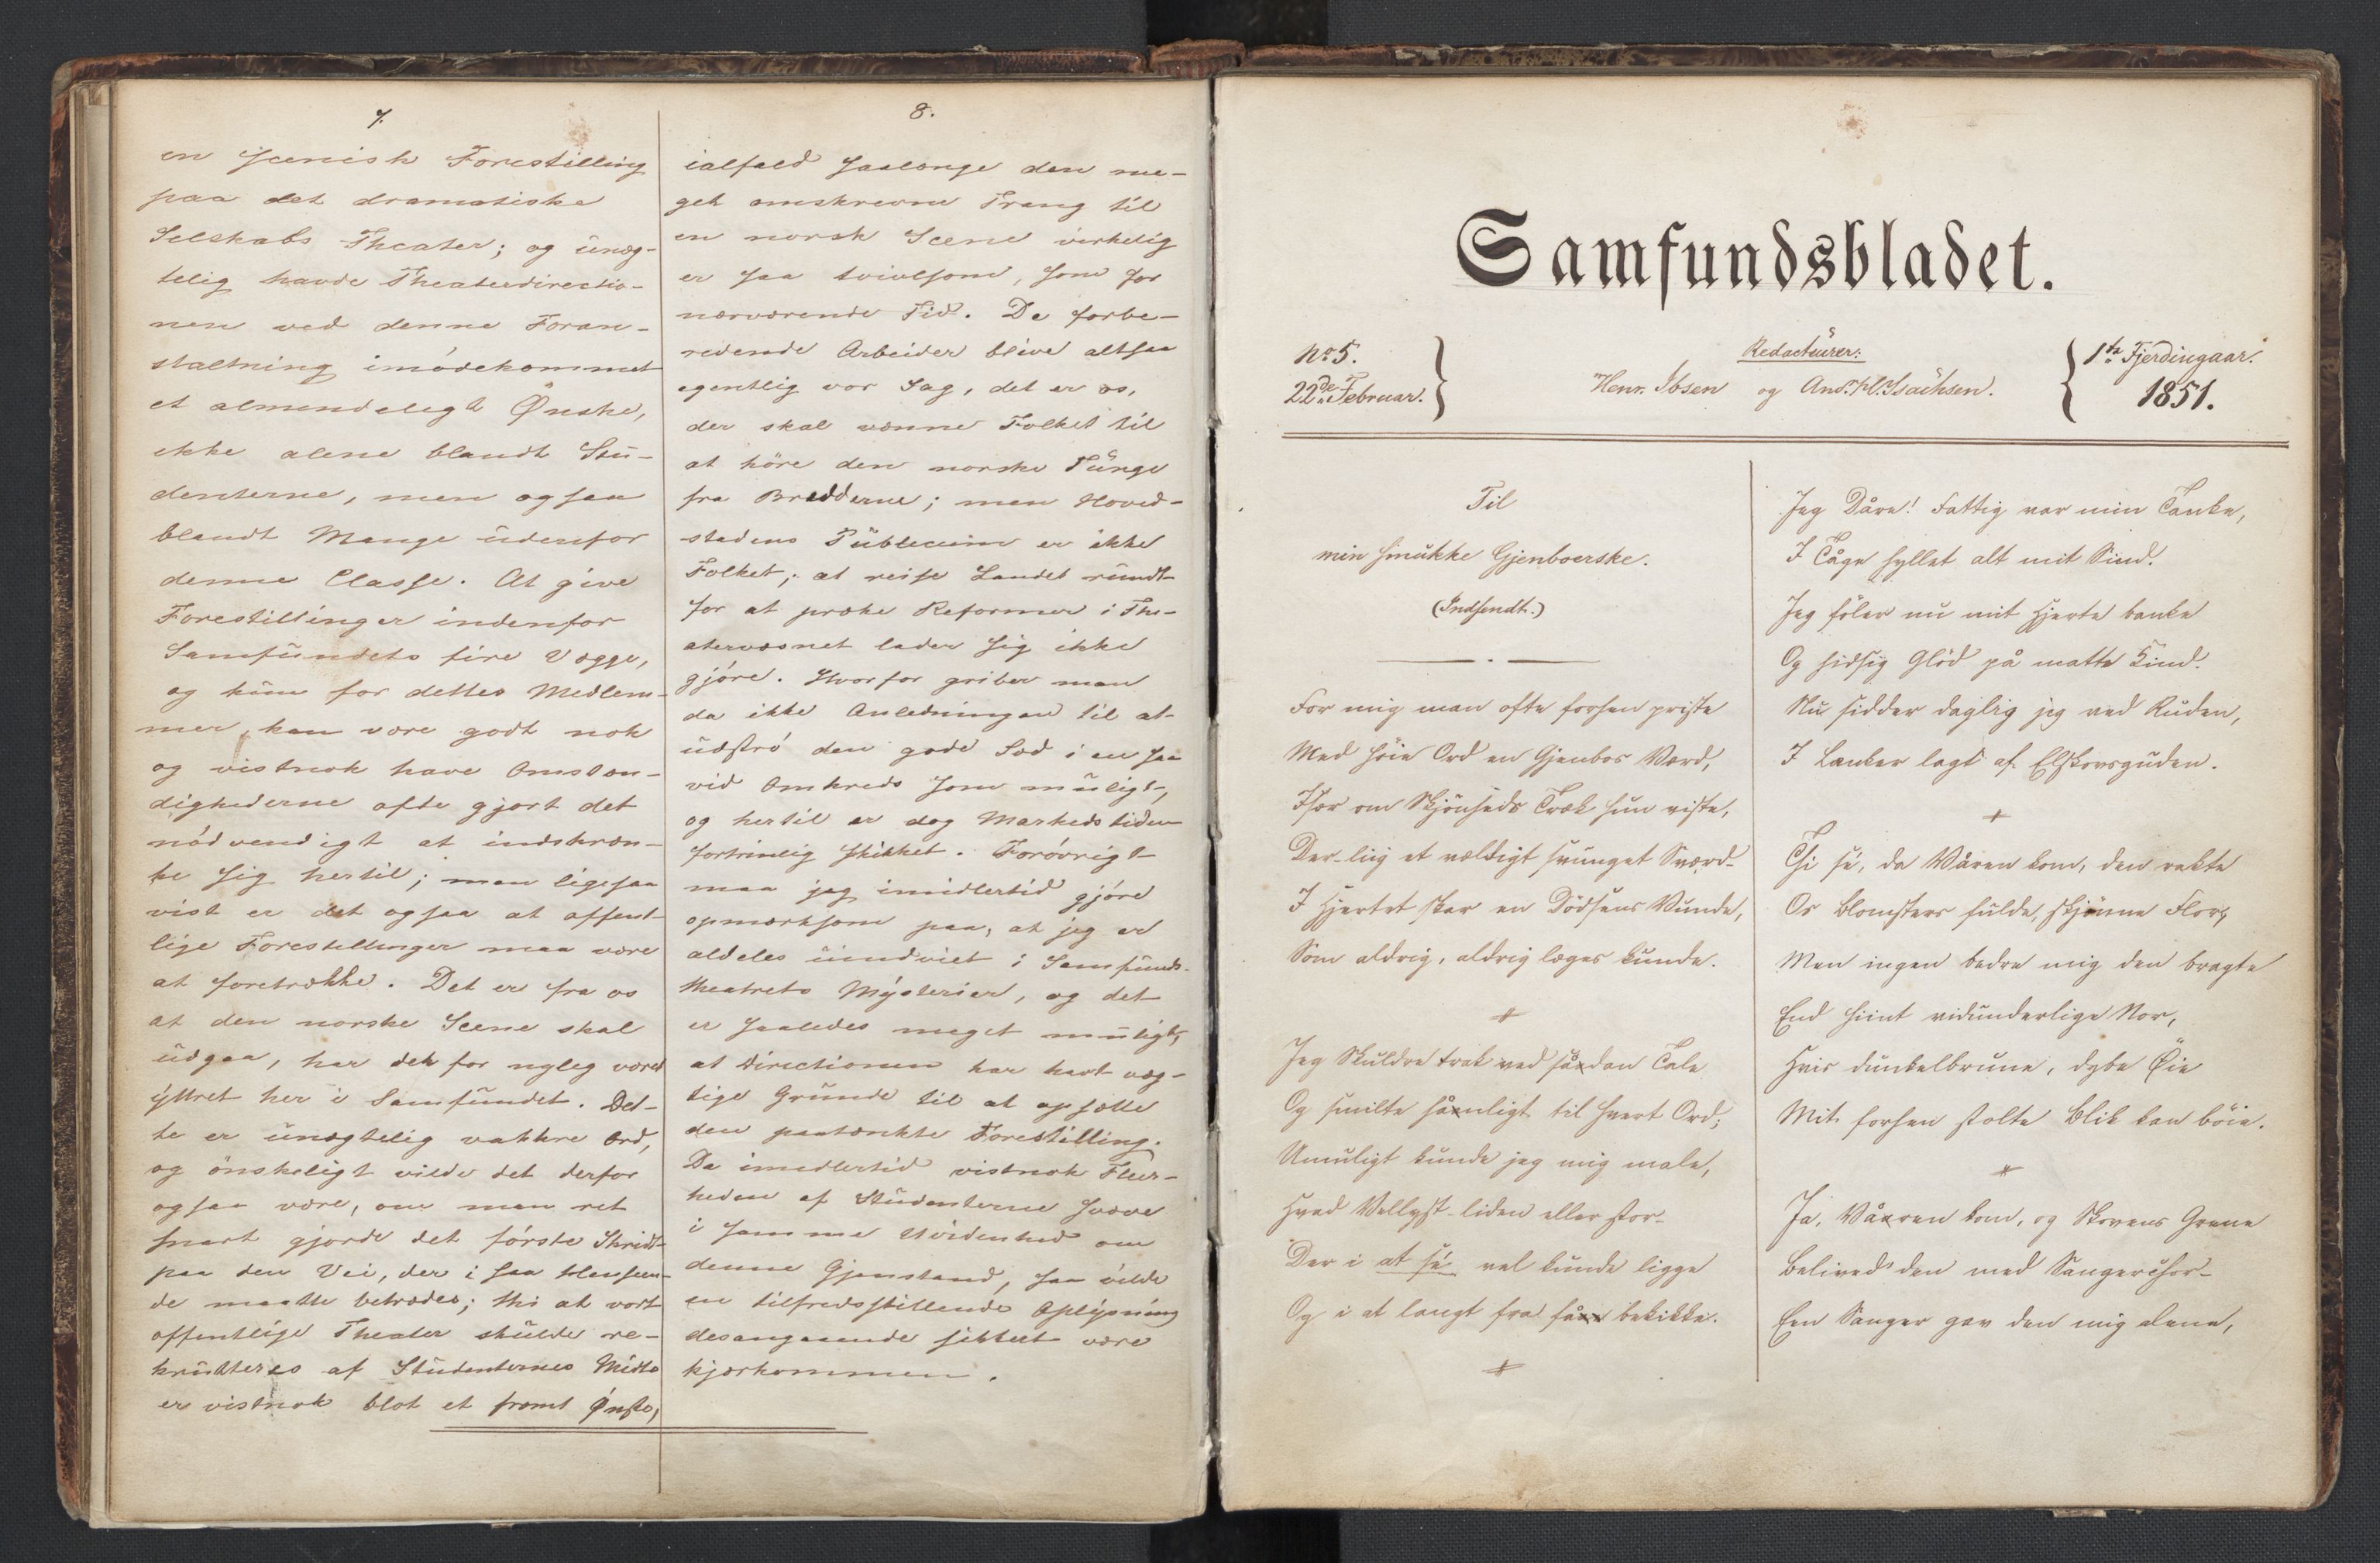 7.
en scenisk Forestilling
paa det dramatiske
Selskabs Theater; og unæg-
telig havde Theaterdirectio-
nen ved denne Foran-
staltning imödekommet
et almindeligt Ønske,
ikke alene blandt Stu-
denterne, men ogsaa
blandt Mange udenfor
denne Classe. At give
Forestillinger indenfor
Samfundets fire Vægge,
og kun for dettes Medlem-
mer, kan være godt nok
og vistnok have Omstæn-
dighederne ofte gjort det
nödvendigt at indskræn-
ke sig hertil; men ligesaa
vist er det ogsaa at offent-
lige Forestillinger maa være
at foretrække. Det er fra os
at den norske Scene skal
udgaa, har det for nylig været
yttret her i Samfundet. Det-
te er unægtelig vakkre Ord,
og önskeligt vilde det derfor
ogsaa være, om man ret
snart gjorde det förste Skridt
paa den Vei, der i saa Henseen-
de maatte betrædes; thi at vort
offentlige Theater skulde re-
krutteres af Studenternes Midte
er vistnok blot et fromt Ønske,
8.
ialfald saalænge den me-
get omskrevne Trang til
en norsk Scene virkelig
er saa tvivlsom, som for
nærværende Tid. De forbe-
redende Arbeider blive altsaa
egentlig vor Sag, det er os,
der skal vænne Folket til
at höre den norske Tunge
fra Brædderne; men Hoved-
stadens Publicum er ikke
Folket; at reise Landet rundt
for at præke Reformer i The-
atervæsnet lader sig ikke
gjöre. Hvorfor griber man
da ikke Anledningen til at
udströ den gode Sæd i en saa
vid Omkreds som muligt,
og hertil er dog Markedstiden
fortrinlig skikket. Forövrigt
maa jeg imidlertid gjöre
opmærksom paa, at jeg er
aldeles uindviet i Samfunds-
theatrets Mysterier, og det
er saaledes meget muligt,
at Directionen har havt væg-
tige Grunde til at opsætte
den paatænkte Forestilling.
Da imidlertid vistnok Fleer-
heden af Studenterne svæve
i samme Uvidenhed om
denne Gjenstand, saa vilde
en tilfredsstillende Oplysning
desangaaende sikkert være
kjærkommen.
Samfundsbladet.
No 5.
22de Februar.
Redacteurer:
Henr. Ibsen og And. H. Isachsen.
1ste Fjerdingaar.
1851.
Til
min smukke Gjenboerske.
(Indsendt.)
For mig man ofte forhen priste
Med höie Ord en Gjenbos Værd,
Især om Skjönheds Træk hun viste,
Der liig et vældigt svunget Sværd
I Hjertet skar en Dödsens Vunde,
Som aldrig, aldrig læges kunde.
Jeg Skuldre trak ved sådan Tale
Og smilte hånligt til hvert Ord;
Umuligt kunde jeg mig male,
Hvad Vellyst liden eller stor
Der i at sé vel kunde ligge
Og i at langt fra få bekikke.
Jeg Dåre! Fattig var min Tanke,
I Tåge hyllet alt mit Sind.
Jeg föler nu mit Hjerte banke
Og hidsig Glöd på matte Kind.
Nu sidder daglig jeg ved Ruden,
I Lænker lagt af Elskovsguden.
Thi sé, da Våren kom, den rakte
Os Blomsters fulde, skjönne Flor,
Men ingen bedre mig den bragte
End hiint vidunderlige Nor,
Hvis dunkelbrune, dybe Øie
Mit forhen stolte Blik kan böie.
Ja, Våren kom, og Skovens Grene
Belived' den med Sangerchor
Een Sanger gav den mig alene,